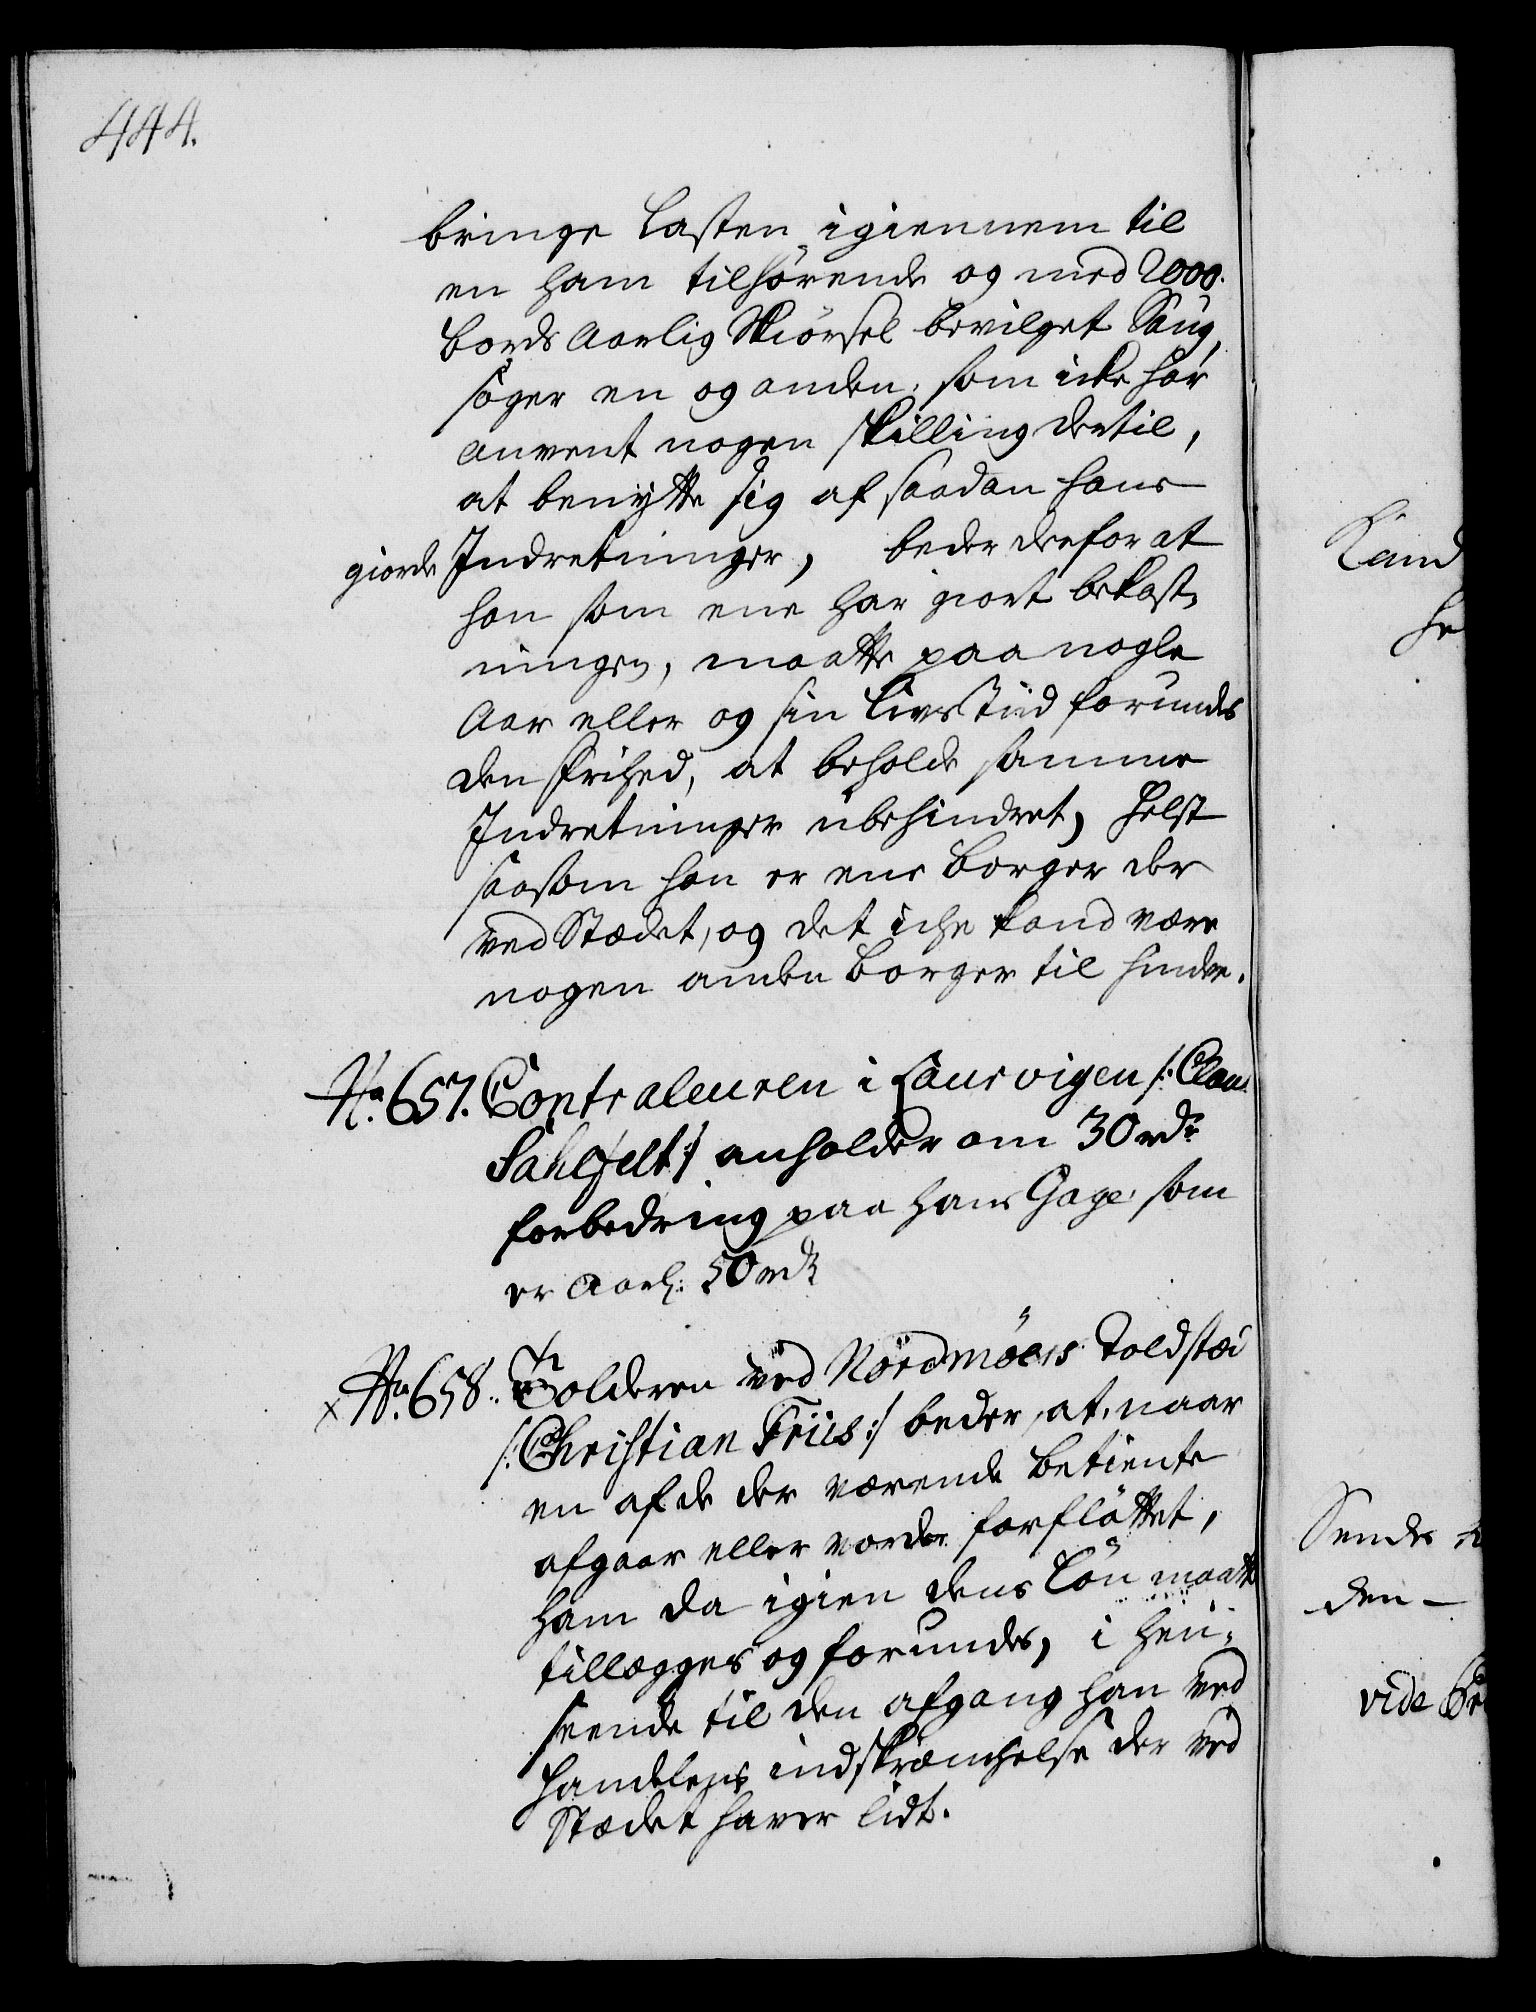 444.
bringe Lasten igiennem til
en ham tilhörende og med 2000.
bords Aarlig Skiörsel bevilget Saug,
söger en og anden, som icke har
anvent nogen skilling dertil,
at benÿtte sig af saadan hans
giorde Indretninger, beder derfor at
han som ene har giort bekost,
ningen, maatte paa nogle
Aar eller og sin Livs Tiid forundes
den Frihed, at beholde samme
Indretninger ubehindret, helst
saasom han er ene borger der
ved Stædet, og det iche kand være
nogen anden borger til hinder.
No. 657. Contraleuren i Laurvigen /: Claus
Sahlfelt :/ anholder om 30 rdr
forbedring paa hans Gage, som
er Aarl: 50 rdr
x No. 658. Tolderen ved Nordmöers Toldstæd
/: Christian Friis :/ beder, at, naar
en af de der værende betiente
afgaar eller vorder forflöttet,
ham da igien dens Lön maatte
tillægges og forundes, i hen-
seende til den afgang han ved
Handelens indskrænchelse der ved
Stædet haver lidt.
Land
he
Sendes
den -
vide